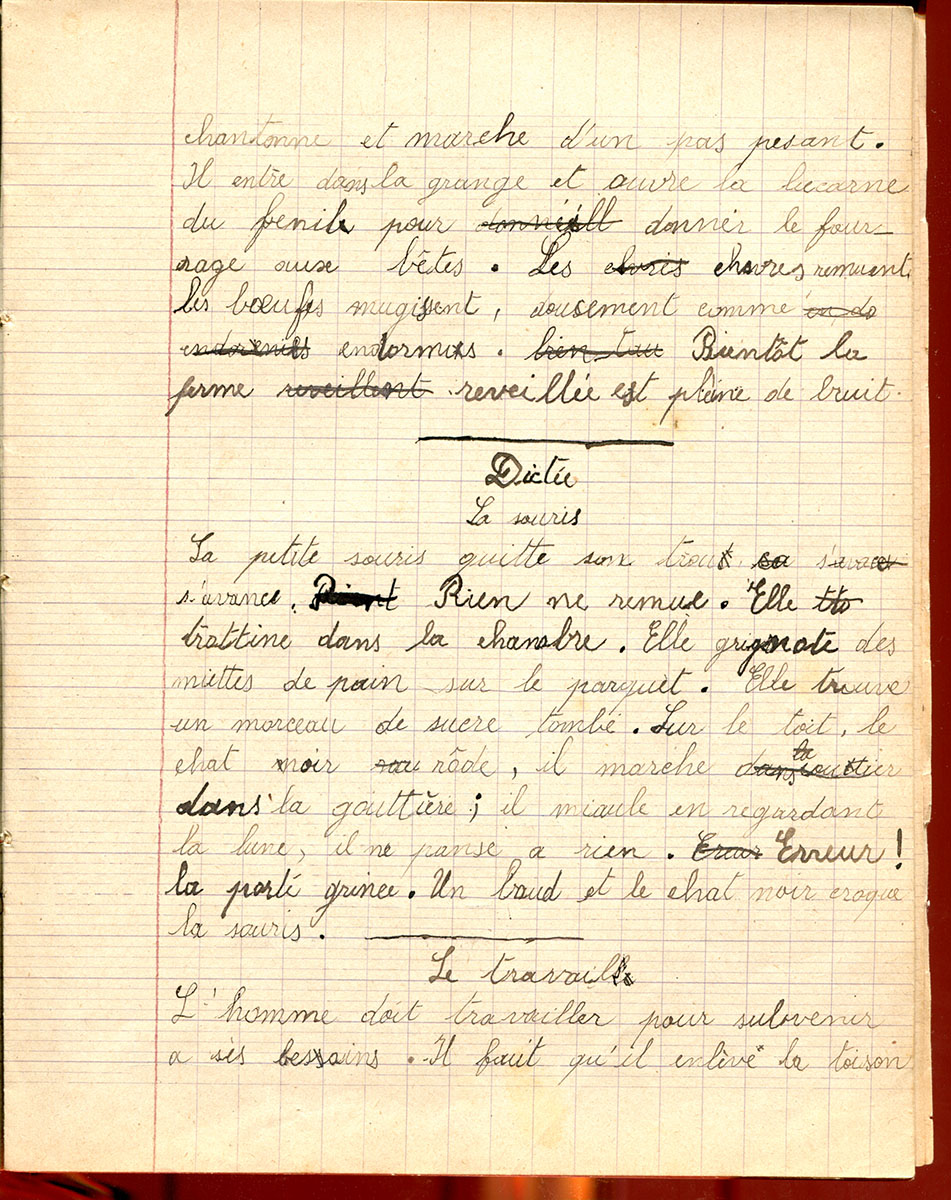 chantonne et marche d'un pas pesant.
Il entre dans la grange et ouvre la lucarne
du fenil pour donner le four-
rage aux bêtes. Les chèvres remuent
les bœufs mugissent, doucement comme
endormis. Bientôt la
ferme reveillée est pleine de bruit.
Dictée
La souris
La petite souris quitte son trou
s'avance. Rien ne remue. Elle
trottine dans la chambre. Elle grignote des
miettes de pain sur le parquet. Elle trouve
un morceau de sucre tombé. Sur le toit, le
chat noir rôde, il marche
dans la gouttière; il miaule en regardant
la lune, il ne panse a rien. Erreur !
la porte grince. Un baud et le chat noir croque
la souris.
Le travail
L'homme doit travailler pour subvenir
a ses besoins. Il faut qu'il enlève la toison